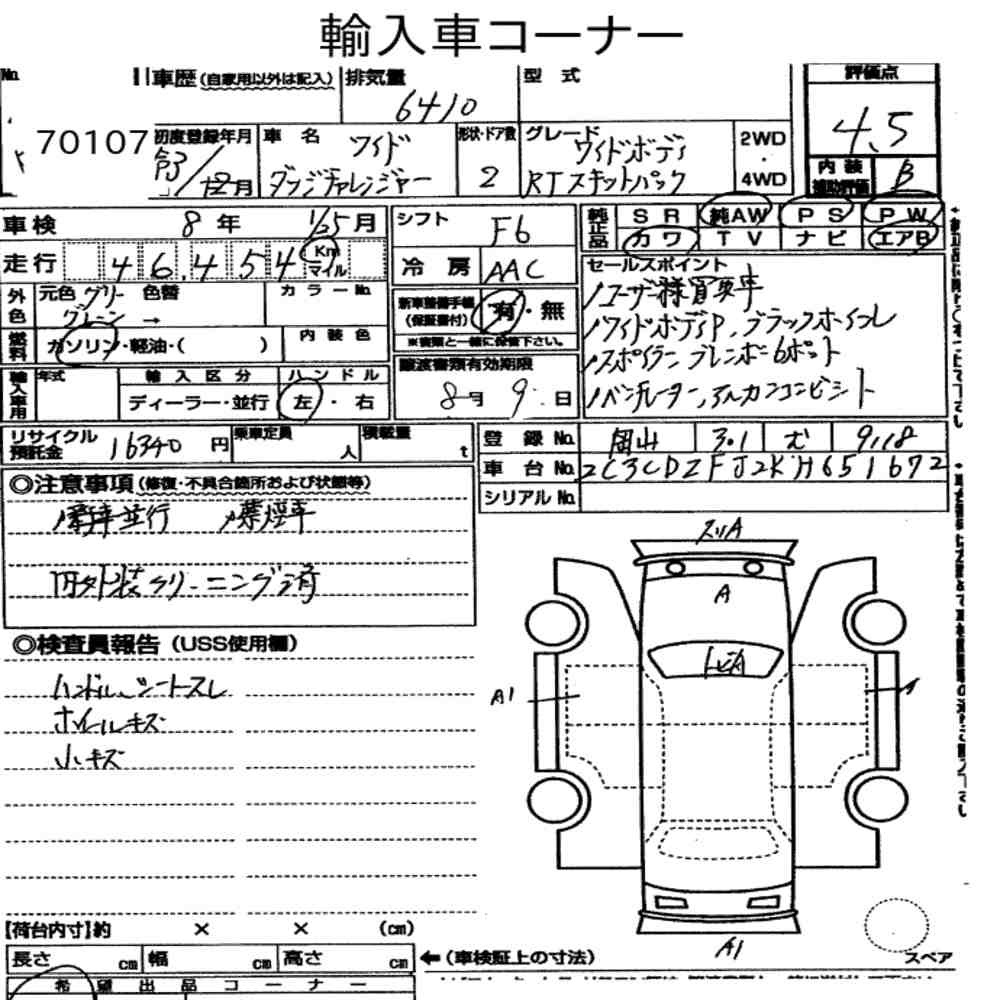 輸入車コーナー
No.
車歴(自家用以外は記入) 排気量 型式 評価点
6410 4.5
70107 初度登録年月 車名 形状・ドア数 グレード 2WD・4WD 内装補助評価 B
令3/12月 ワイド ダッジチャレンジャー 2 ワイドボディ RTスキャットパック
車検 8年 1/25月 シフト F6 純正品 SR 純AW PS PW
カワ TV ナビ エアB
走行 46,454 Km マイル 冷房 AAC
セールスポイント
外色 元色 グリーン 色替 → カラーNo. 新車整備手帳(保証書付) 有・無
グレーン
※書類と一緒に保管下さい。
燃料 ガソリン・軽油・( ) 内装色 譲渡書類有効期限
8月 9日
/ユーザー様買取車
/ワイドボディP、ブラックホイール
/スポイラー ブレンボー6ポット
/ベンチレーター、アルカンコンビシート
輸入車用 年式 輸入区分 ハンドル
ディーラー・並行 左・右
リサイクル預託金 16340円 乗車定員 人 積載量 t
登録No. 岡山 301 む 9118
車台No. 2C3CDZFJ2KH651672
シリアルNo.
◎注意事項(修復・不具合箇所および状態等)
/新車並行 /禁煙車
内外装クリーニング済
◎検査員報告(USS使用欄)
ハンドル、シートスレ
ホイールキズ
小キズ
スリA
A
トビA
A1
A1
スペア
【荷台内寸】約 × × (cm)
長さ cm 幅 cm 高さ cm ←(車検証上の寸法)
希望出品コーナー